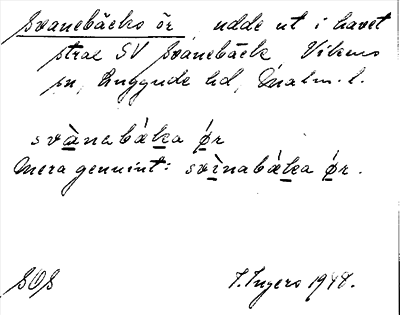 Svanebäcks ör, udde ut i havet
strax SV Svanebäck Vikens
sn, Luggude hd, Malm. l.
svànabǽka ǿr
Mera genuint: svìnabǽka ǿr.
SOS I. Ingers 1948.